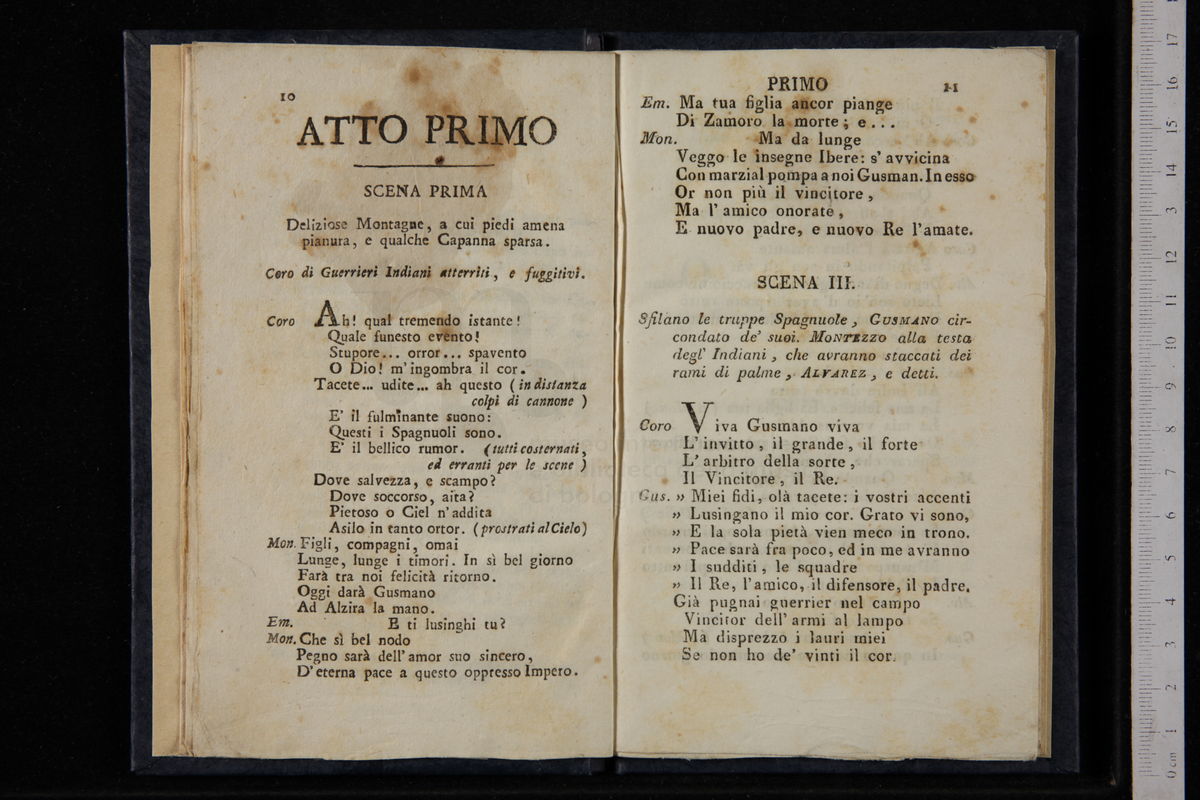 10
ATTO PRIMO
SCENA PRIMA
Deliziose Montagne, a cui piedi amena
pianura, e qualche Capanna sparsa.
Coro di Guerrieri Indiani atterriti, e fuggitivi.
Coro Ah! qual tremendo istante!
Quale funesto evento!
Stupore... orror... spavento
O Dio! m'ingombra il cor.
Tacete... udite... ah questo (in distanza
colpi di cannone)
E' il fulminante suono:
Questi i Spagnuoli sono.
E' il bellico rumor. (tutti costernati,
ed erranti per le scene)
Dove salvezza, e scampo?
Dove soccorso, aita?
Pietoso o Ciel n'addita
Asilo in tanto orror. (prostrati al Cielo)
Mon. Figli, compagni, omai
Lunge, lunge i timori. In sì bel giorno
Farà tra noi felicità ritorno.
Oggi darà Gusmano
Ad Alzira la mano.
Em. E ti lusinghi tu?
Mon. Che sì bel nodo
Pegno sarà dell'amor suo sincero,
D'eterna pace a questo oppresso Impero.
PRIMO 11
Em. Ma tua figlia ancor piange
Di Zamoro la morte; e...
Mon. Ma da lunge
Veggo le insegne Ibere: s'avvicina
Con marzial pompa a noi Gusman. In esso
Or non più il vincitore,
Ma l'amico onorate,
E nuovo padre, e nuovo Re l'amate.
SCENA III.
Sfilano le truppe Spagnuole, GUSMANO cir-
condato de' suoi. MONTEZZO alla testa
degl' Indiani, che avranno staccati dei
rami di palme, ALVAREZ, e detti.
Coro Viva Gusmano viva
L'invitto, il grande, il forte
L'arbitro della sorte,
Il Vincitore, il Re.
Gus. » Miei fidi, olà tacete: i vostri accenti
» Lusingano il mio cor. Grato vi sono,
» E la sola pietà vien meco in trono.
» Pace sarà fra poco, ed in me avranno
» I sudditi, le squadre
» Il Re, l'amico, il difensore, il padre.
Già pugnai guerrier nel campo
Vincitor dell'armi al lampo
Ma disprezzo i lauri miei
Se non ho de' vinti il cor.
0 cm 1 2 3 4 5 6 7 8 9 10 11 12 3 14 15 16 17